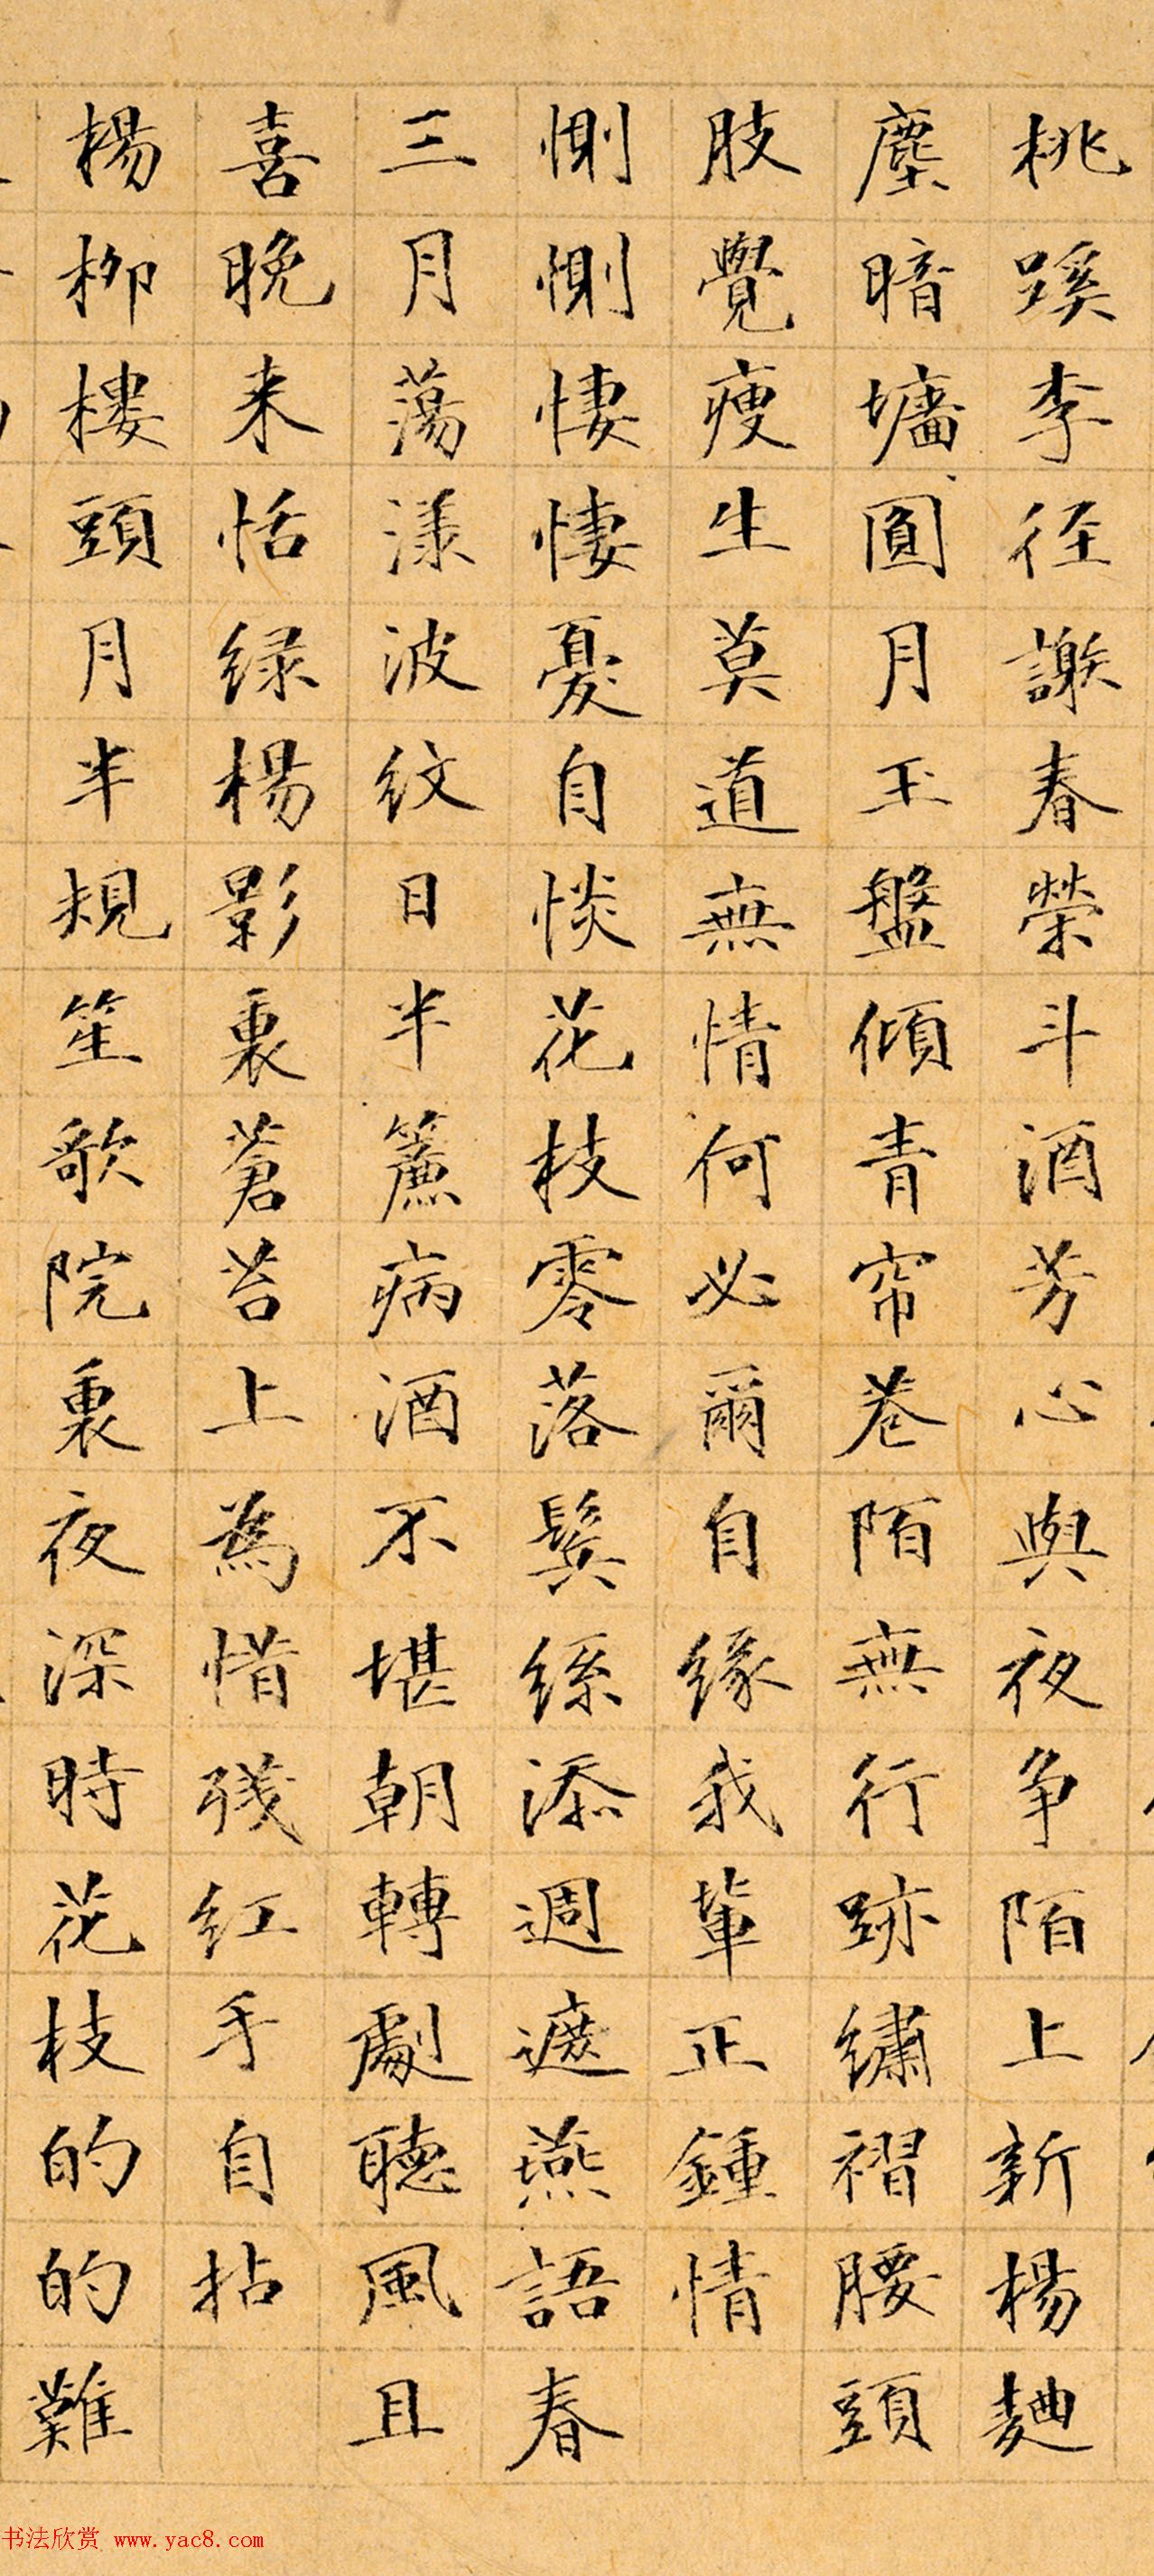 桃蹊李径謝春榮斗酒芳心與夜争陌上新楊麯
塵暗墻圓月玉盤傾青帘巷陌無行跡繡褶腰頭
肢覺瘦生莫道無情何必爾自緣我輩正鍾情
惻惻悽悽憂自惔花枝零落鬓絲添週遮燕語春
三月蕩漾波紋日半簾病酒不堪朝轉劇聽風且
喜晩来恬绿楊影裏蒼苔上為惜残红手自拈
楊柳樓頭月半規笙歌院裏夜深時花枝的的難
书法欣赏 www.yac8.com